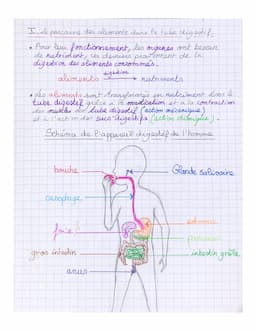 I. Le parcours des aliments dans le tube digestif.
• Pour leur fonctionnement, les organes ont besoin
de nutriment, ces derniers proviennent de la
digestion des aliments consommés.
digestion
aliments → nutriments
• Les aliments sont transformés en nutriment dans le
tube digestif grâce à la mastication et à la contraction
des muscles du tube digestif (action mécanique)
et à l'action des sucs digestifs (action chimique).
Schéma de l'appareil digestif de l'homme
bouche
Glande salivaire
oesophage
estomac
foie
pancréas
gros intestin
intestin grêle
anus